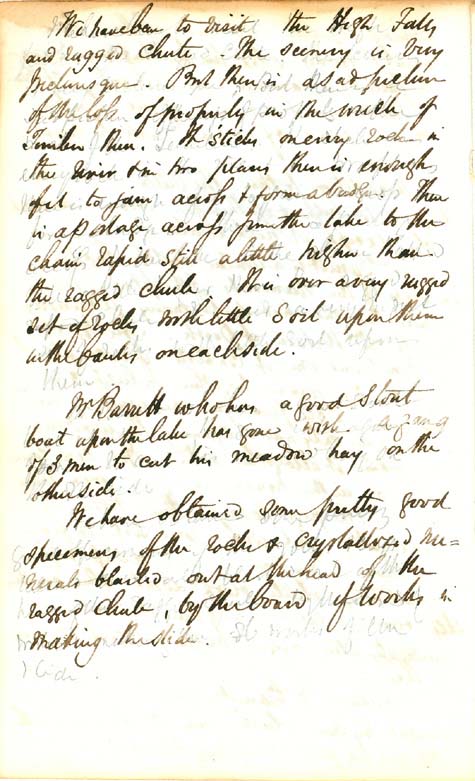 We have been to visit the High Falls
and ragged chute. The scenery is very
picturesque. But there is a sad picture
of the loss of property in the wreck of
Timber there. It sticks on every rock in
the river & in two places there is enough
of it to jam across & form a bridge. There
is a portage across from the lake to the
chain rapid still a little higher than
the ragged chute. It is over a very rugged
set of rocks with little soil upon them
in the banks on each side.
Mr Barrett who has a good stout
boat upon the lake has gone with a gang
of 3 men to cut his meadow hay on the
other side.
We have obtained some pretty good
specimens of the rocks & crystallized mi=
nerals blasted out at the head of the
ragged chute, by the board of Works in
making the slide.